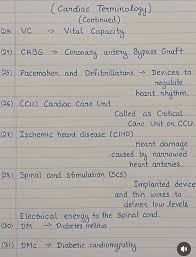 (Cardiac Terminology)
(Continued)
(23) VC → Vital Capacity
(24) CABG → Coronary artery Bypass Graft
(25) Pacemaker and Defibrillators → Devices to
regulate
heart rhythm.
(26) CCU) Cardiac Care Unit
Called as Critical
Care Unit on CCU
(27) Ischemic heart disease (CIHD)
Heart damage
caused by narrowed
heart arteries.
(28) Spinal Cord Stimulation (SCS)
Implanted device
and thin wires to
deliver low levels
Electrical energy to the Spinal cord.
(30) DM → Diabetes melitus
(31) DMC → Diabetic cardiomyopathy